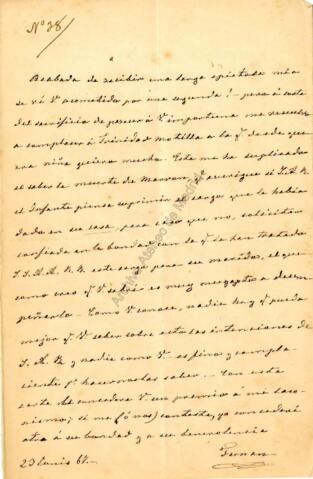 Nº 38/
Acabada de recibir una larga epistola mia
se vé V. acometido por una segunda! - pero á costa
del sacrificio de parecer á V. importuna me resuelvo
a complacer á Trinidad Motilla a la q.e desde que
era niña quiero mucho. Esta me ha suplicado
al saber la muerte de Marvan q.e averigue si S.A.R.
el Infante piensa suprimir el cargo que le habia
dado en su casa, para caso que no, solicitar
confiada en la bondad con la q.e la han tratado
S.S.A.A.R.R. este cargo para su marido, el que
como creo q.e V. sabrá es muy apto a desem
peñarlo. Como V. conoce, nadie hay q.e pueda
mejor q.e V. saber sobre esto las intenciones de
S.A.R. y nadie como V. es fino y compla
ciente p.a hacernoslas saber. - Con esta
carta me concederá V. un premio á mi laco
nismo; si me (ó nos) contesta, yo concederé
otro á su bondad y a su benevolencia
23 Junio 64. -
Fernan
Archivo